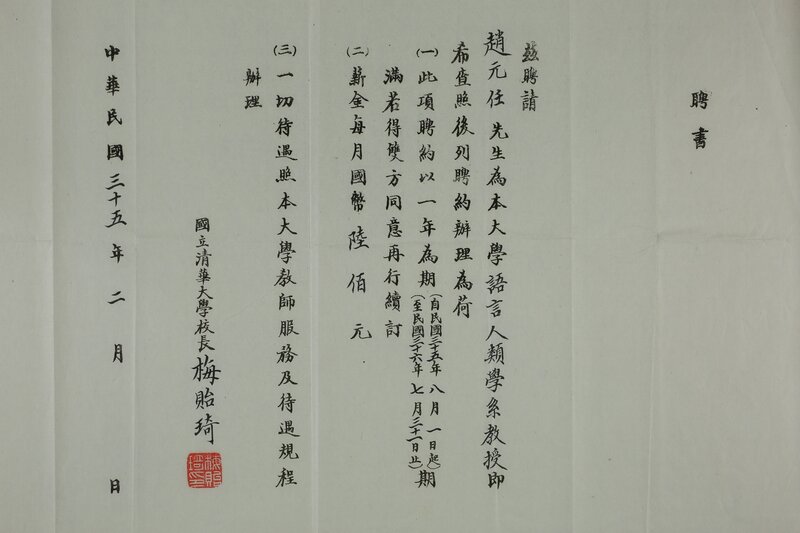 聘書
茲聘請
趙元任先生為本大學語言人類學系教授即
希查照後列聘約辦理為荷
(一)此項聘約以一年為期(自民國三十五年八月一日起)(至民國三十六年七月三十一日止)期
滿若得雙方同意再行續訂
(二)薪金每月國幣陸佰元
(三)一切待遇照本大學教師服務及待遇規程
辦理
國立清華大學校長梅貽琦
梅貽琦印
中華民國三十五年二月 日